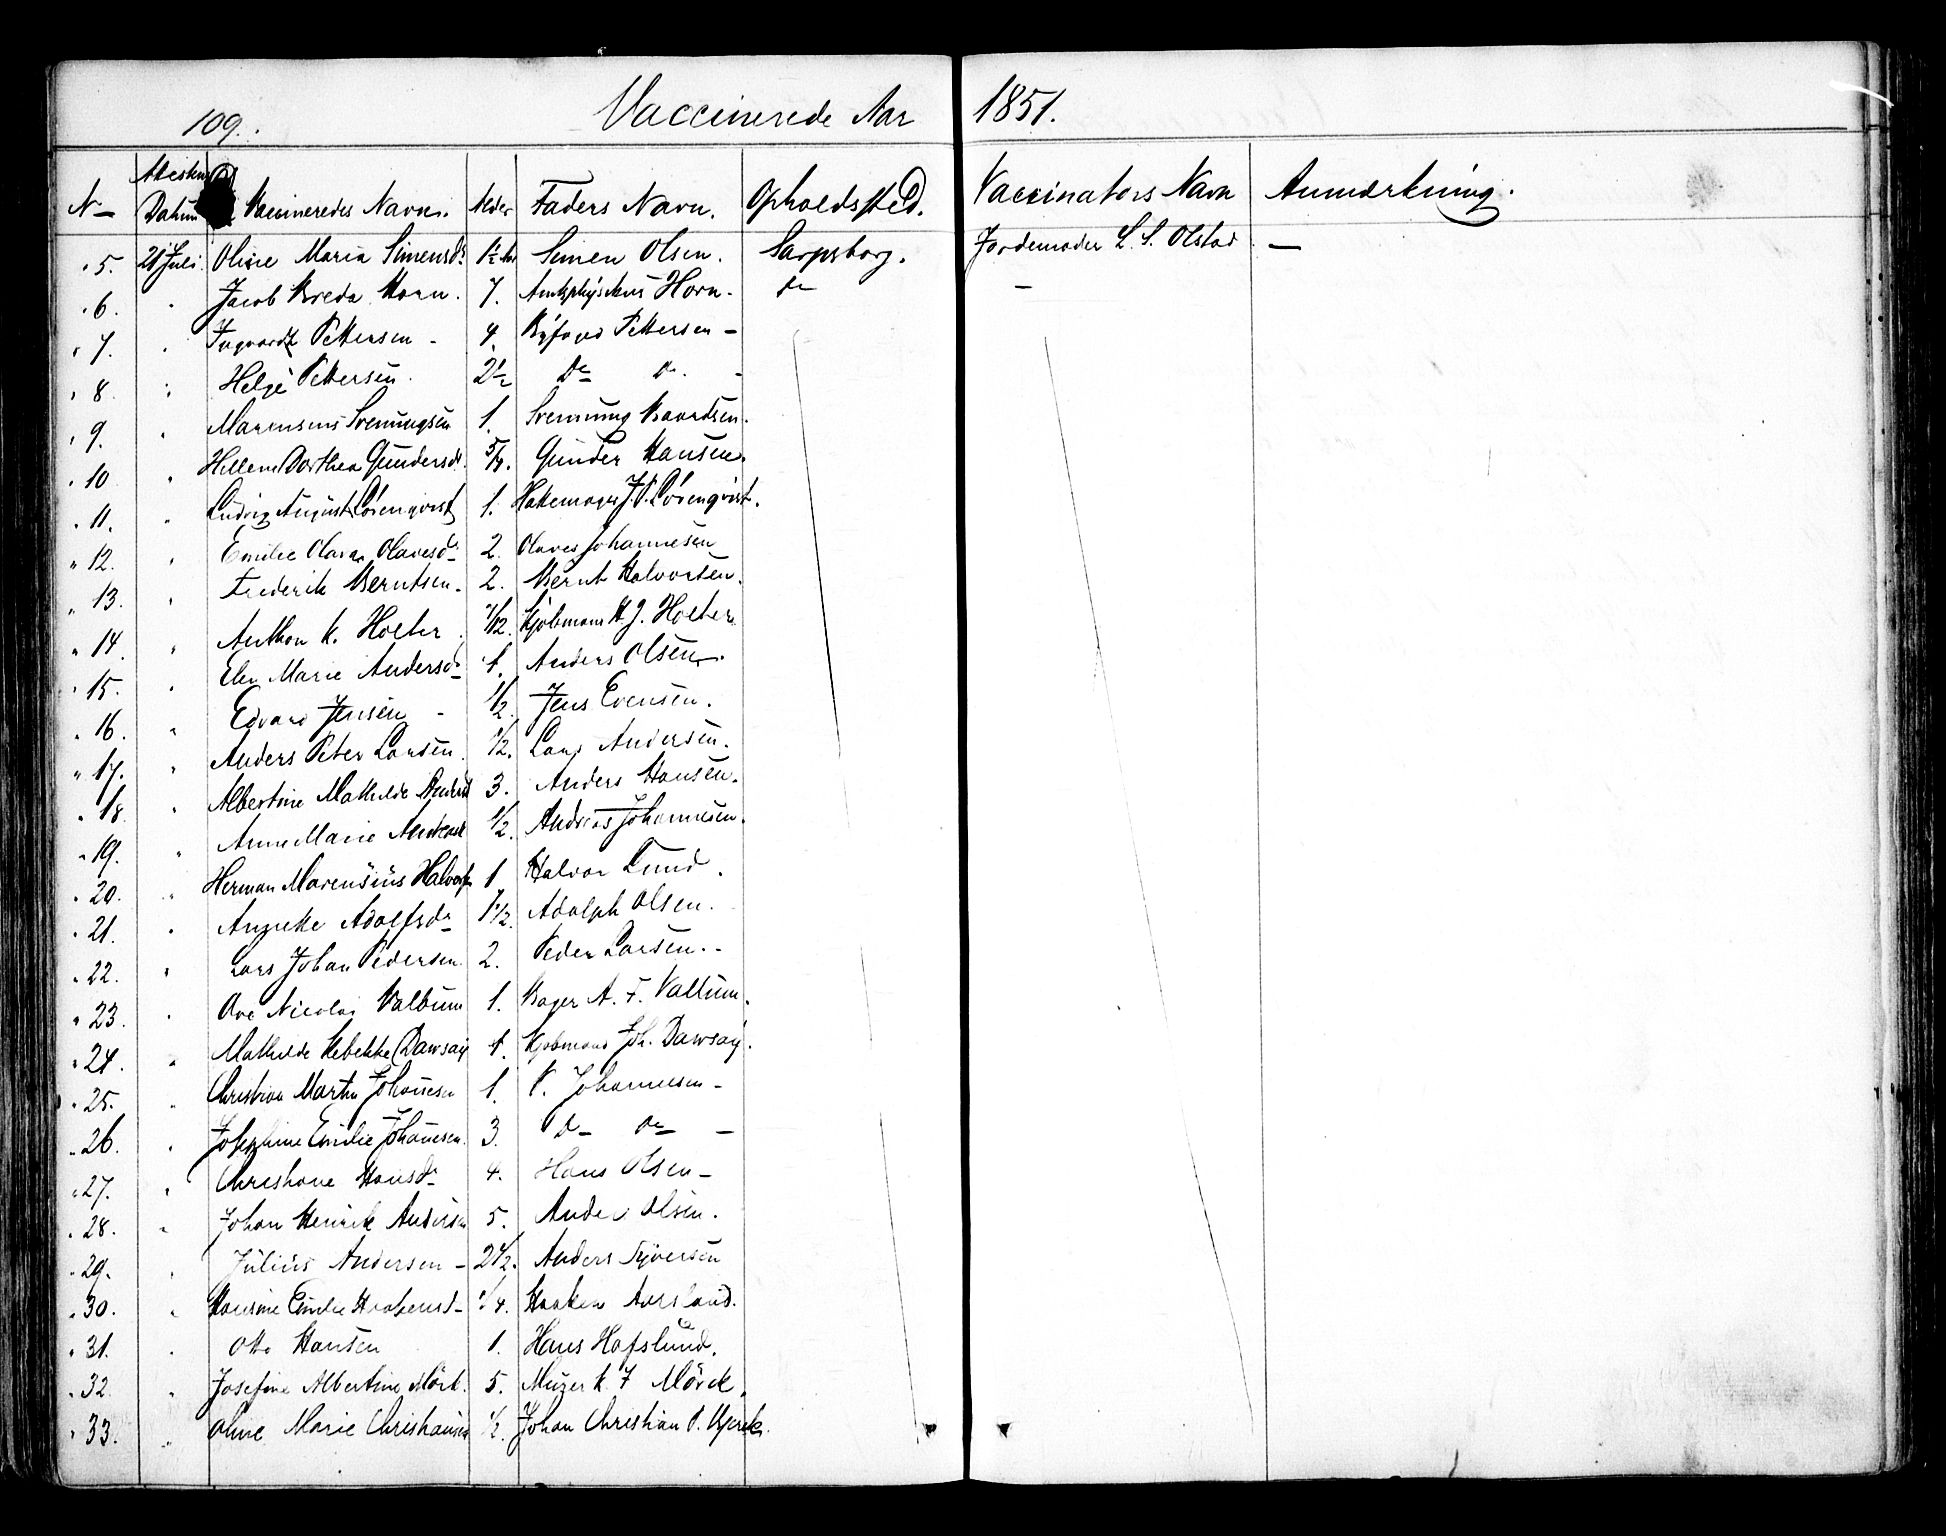 109. Vaccinerede Aar 1851.
No Attestens Datum Vaccineredes Navn. Alder Faders Navn. Opholdssted. Vaccinators Navn Anmærkning.
" 5. 21 Juli. Oline Maria Simensdr 1½ Aar Simen Olsen. Sarpsborg. Jordemoder L. S. Olstad —
" 6. " Jacob Breda Horn. 7. Amtsphysikus Horn. do —
" 7. " Ingvardt Pettersen - 4. Byfoged Pettersen -
" 8. " Helge Pettersen. 2½ do do. -
" 9. " Marensius Svenningsen 1. Svenning Baardsen.
" 10 " Hellene Dorthea Gundersdr. 5/4. Gunder Hansen.
" 11. " Ludvig August Lövenqvist 1. Hattemager J. P. Lövenqvist.
" 12. " Emilie Olava Olavesdr 2. Olaves Johannesen
" 13. " Frederik Berntsen. 2. Bernt Halvorsen.
" 14. " Anthon K. Holter. 7/12. Kjöbmand H. J. Holter.
" 15. " Elen Marie Andersdr 1. Anders Olsen.
" 16. " Edvard Jensen - 1/2. Jens Evensen.
" 17. " Anders Peter Larsen. 1/2. Lars Andersen.
" 18. " Albertine Mathilde Andersd 3. Anders Hansen.
" 19. " Anne Marie Andreasd 1/2. Andreas Johannesen.
" 20. " Herman Marensius Halvors 1 Halvor Lund.
" 21. " Adolfsdr 1 1/2. Adolph Olsen.
" 22. " Lars Johan Pedersen. 2. Peder Larsen. -
" 23. " Ove Nicolai Vallum 1. Bager A. F. Vallum.
" 24. " Mathilde Rebekke Dawsay 1. Kjöbmand Joh. Dawsay.
" 25. " Christian Martin Johansen 1. P. Johannesen -
" 26. " Josephine Emilie Johansen. 3. do do —
" 27. " Christiane Hansdr 4. Hans Olsen -
" 28. " Johan Henrik Andersen 5. Anders Olsen.
" 29. " Julius Andersen - 2 1/2. Anders Syversen
" 30. " Hansine Emilie Haakensd 1/4. Haaken Aarsland.
" 31. " Otto Hansen 1. Hans Hafslund.
" 32. " Josefine Albertine Mörk. 5. K. F Mörck.
" 33. " Oline Marie Christiansen 1/2. Johan Christian P.